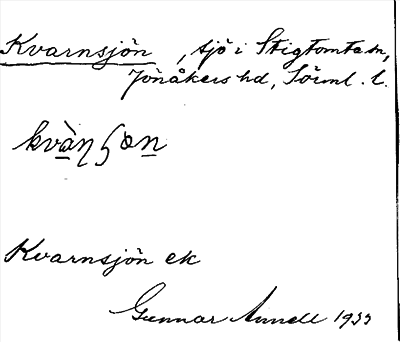 Kvarnsjön, sjö i Stigtomta sn,
Jönåkers hd, Sörml. l.
kvàṇʃǝn
Kvarnsjön ek
Gunnar Annell 1933